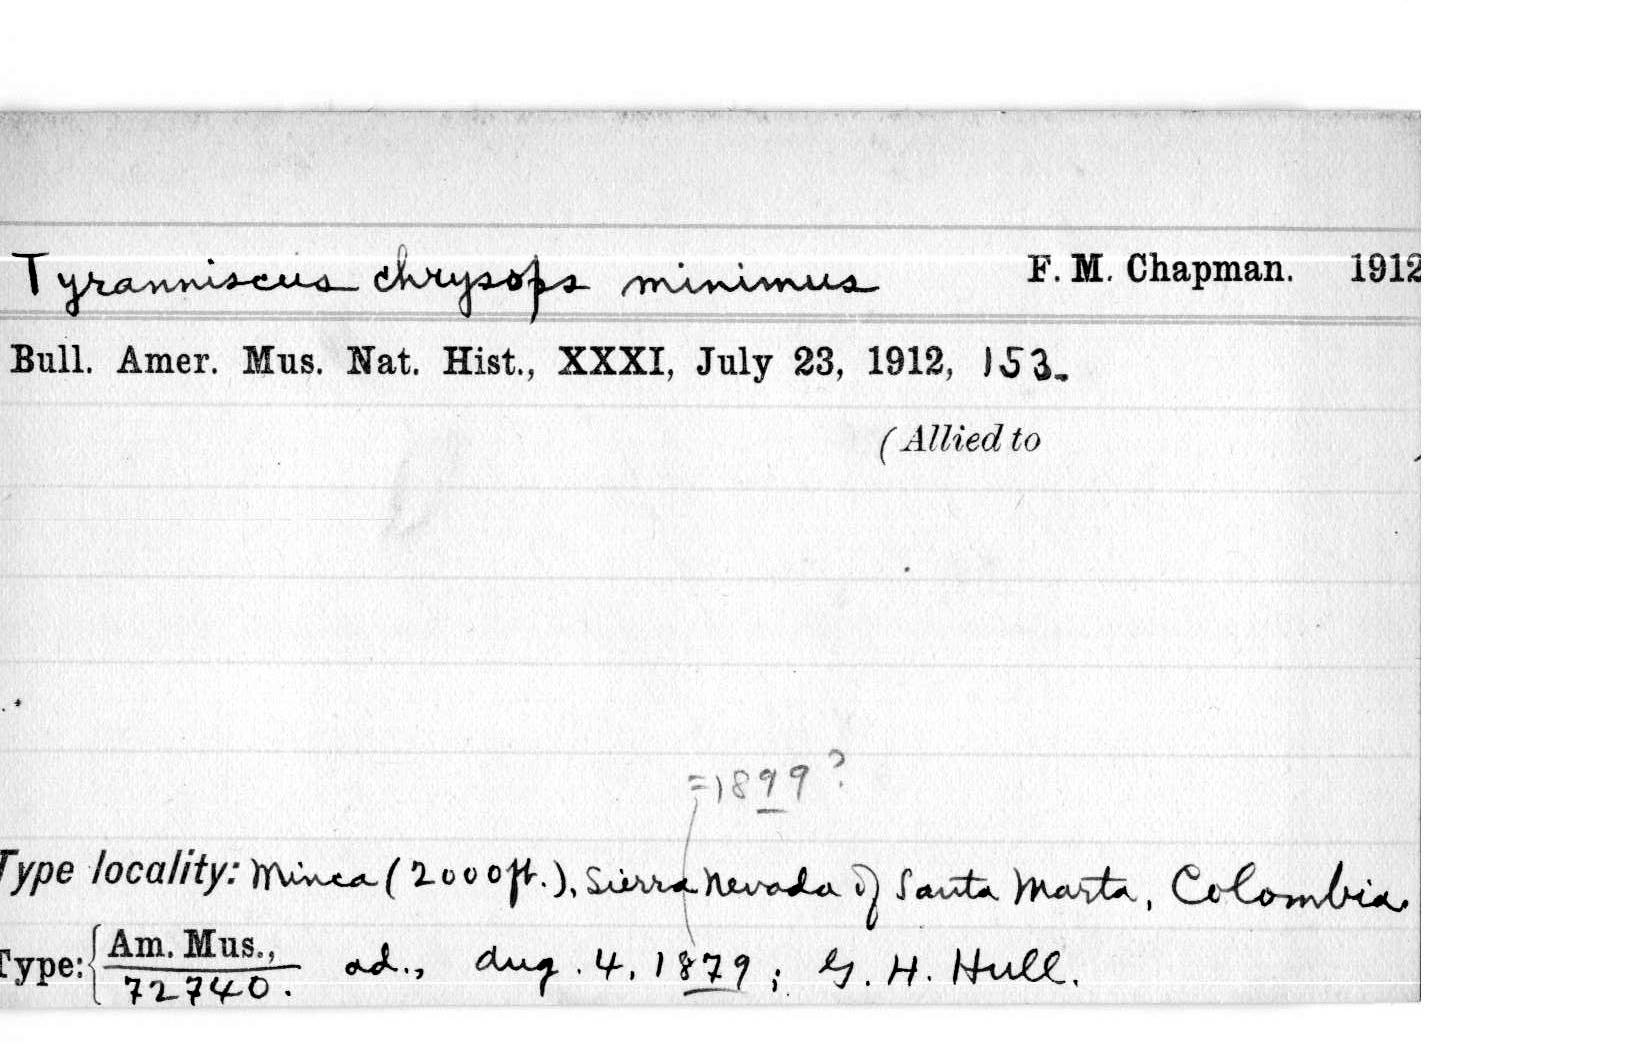 Tyranniscus chrysops minimus F. M. Chapman. 1912
Bull. Amer. Mus. Nat. Hist., XXXI, July 23, 1912, 153.
(Allied to
=1899?
Type locality: Minca (2000ft.), Sierra Nevada of Santa Marta, Colombia.
Type: { Am. Mus., 72740. ad., Aug. 4, 1879; G. H. Hull.